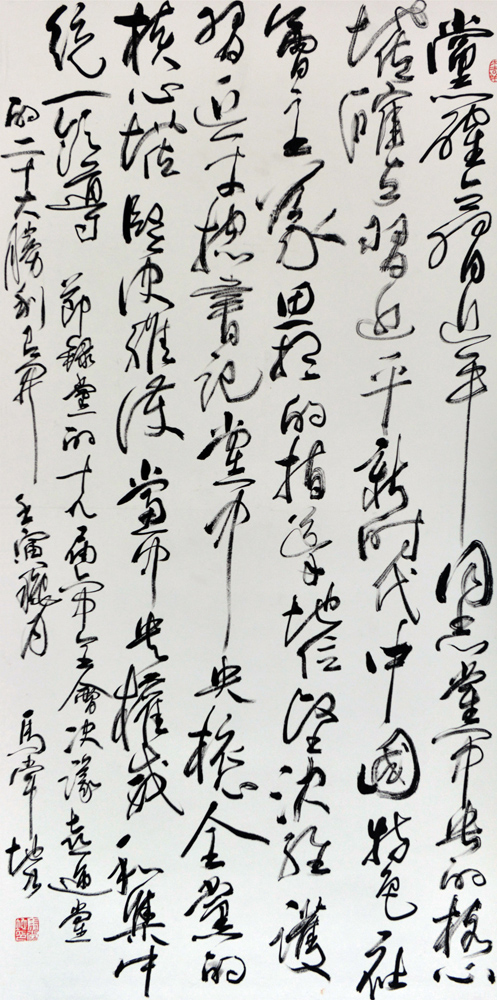 黨確立習近平同志黨中央的核心
地位確立習近平新时代中國特色社
會主義思想的指導地位堅決維護
習近平總書記黨中央核心全黨的
核心地位堅決維護黨中央權威和集中
統一領導 節録黨的十九屆六中全會决議喜迎黨
的二十大勝利召開 壬寅臘月 馬